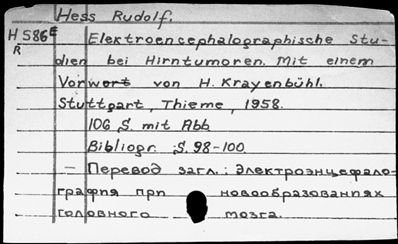 Hess Rudolf.
H586E Elektroencephalographische Stu-
R dien bei Hirntumoren. Mit einem
Vorwort von H. Krayenbühl.
Stuttgart, Thieme, 1958.
106 S. mit Abb
Bibliogr. :S. 98-100
— Перевод загл.: Электроэнцефало-
графия при новообразованиях
головного мозга.